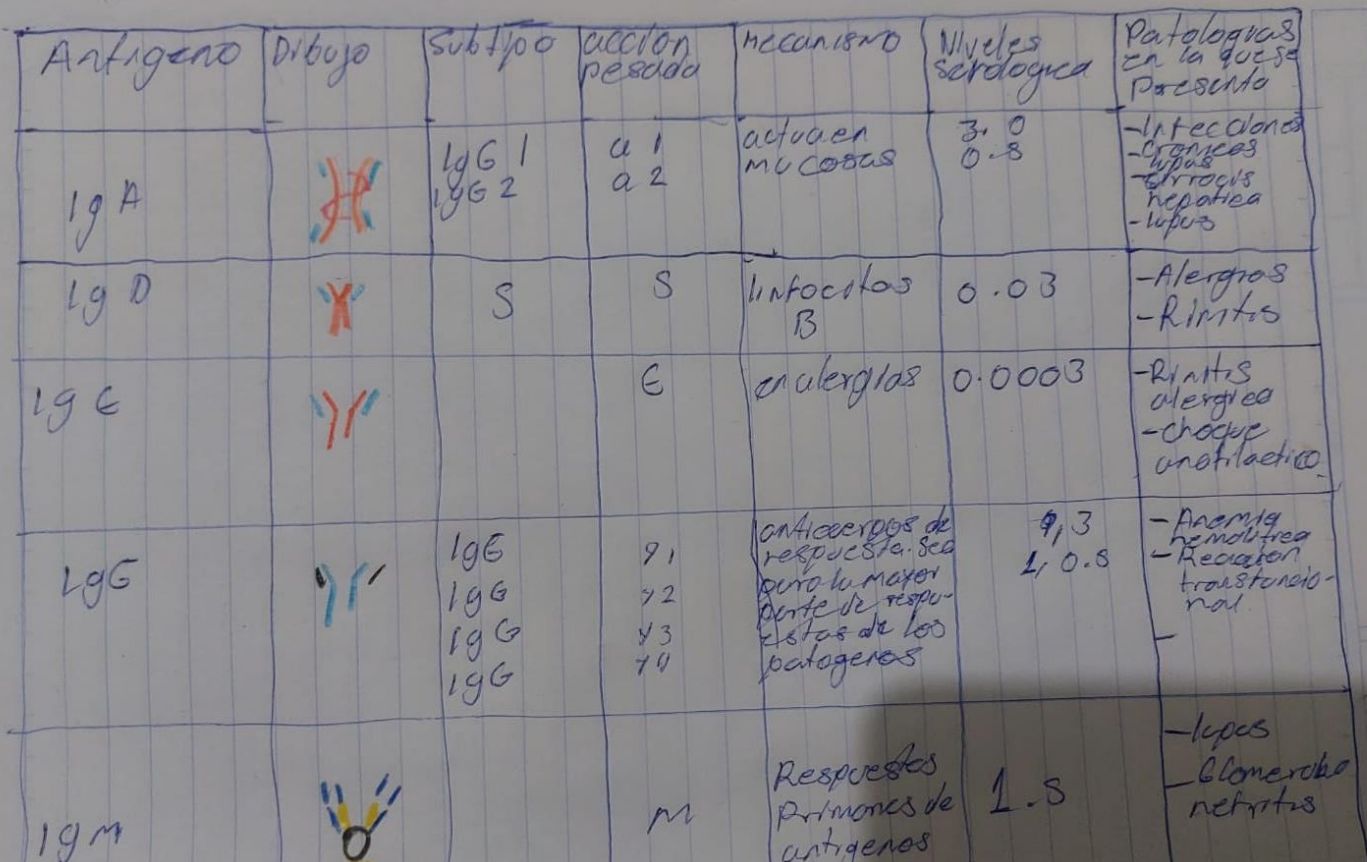 Antigeno
Dibujo
Subtipo
accion
pesada
mecanismo
Niveles
serologica
Patologias
en la que se
Presenta
Ig A
IgG 1
IgG 2
a 1
a 2
actua en
mucosas
3.0
0.5
-Infecciones
Cronicas
-lupus
-cirrocis
hepatica
-lupus
Ig D
S
S
linfocitos
B
0.03
-Alergias
-Rinitis
Ig E
E
en alergias
0.0003
-Rinitis
alergica
-choque
anafilactico
IgG
IgG
IgG
IgG
IgG
γ1
γ2
γ3
γ4
anticuerpos de
respuesta. sea
para la mayor
parte de respu-
estas de los
patogenos
9,3
1, 0.5
-Anemia
hemolitica
-Reaccion
transfuncio-
nal.
-
Ig m
m
Respuestas
Primarias de
antigenos
1.5
-lupus
-Glomerulo
nefritis